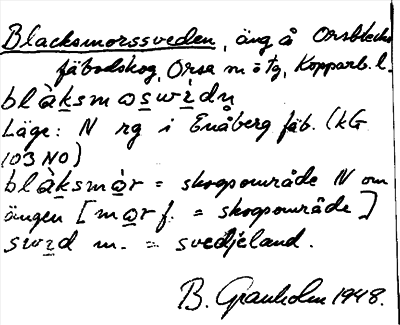 Blacksmorssveden, äng å Orsbleck
fäbodskog, Orsa m ö tg, Kopparb. l.
blàksmo̱swi̱dn
Läge: N rg i Enåberg fäb. (kG
103 NO)
blàksmòr = skogsområde N om
ängen [mo̱r f. = skogsområde]
swi̱d m. = svedjeland.
B. Granholm 1948.